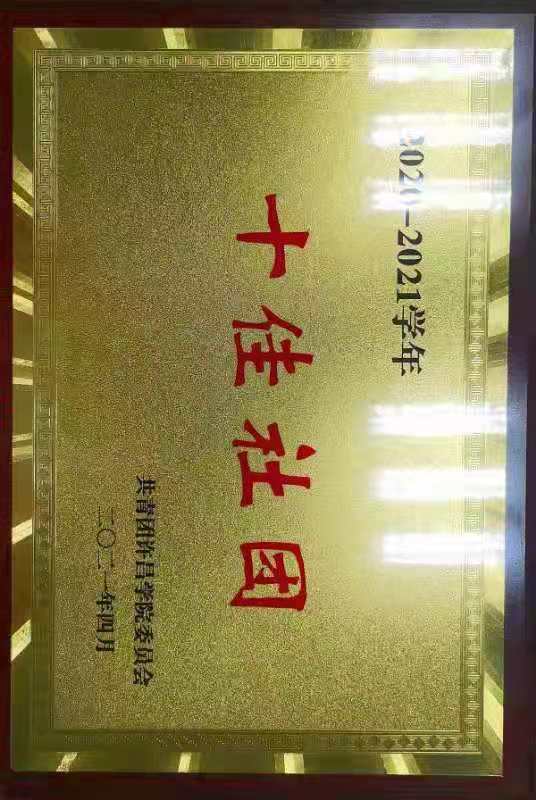 2020-2021学年
十佳社团
共青团许昌学院委员会
二〇二一年四月